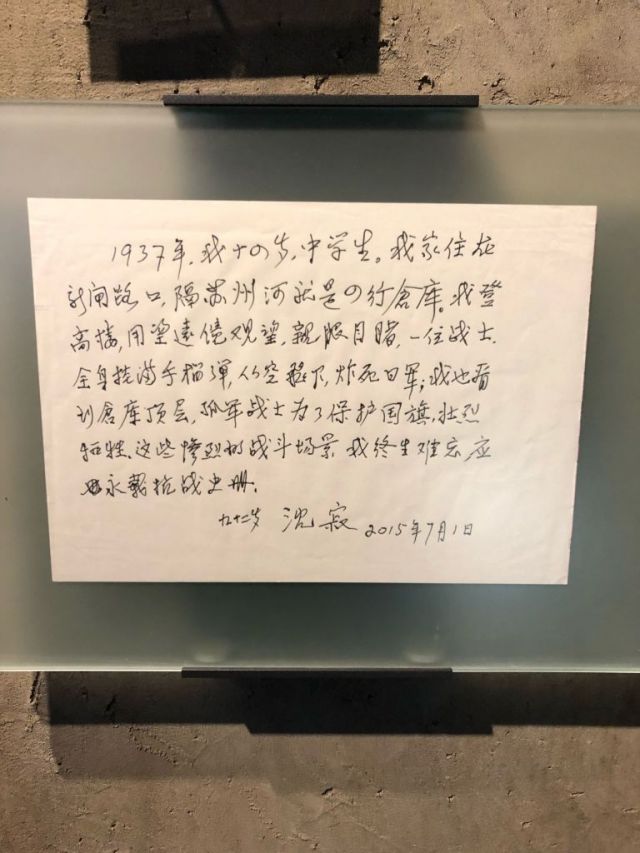 1937年,我十四岁,中学生。我家住在
新闸路口,隔苏州河就是四行倉库。我登
高楼,用望遠镜观望,親眼目睹,一位战士,
全身挂满手榴弹,从空躍下,炸死日军;我也看
到倉库顶层,孤军战士为了保护国旗,壮烈
牺牲。这些惨烈的战斗场景,我终生难忘,应
永載抗战史册.
九十二岁 沈寂 2015年7月1日